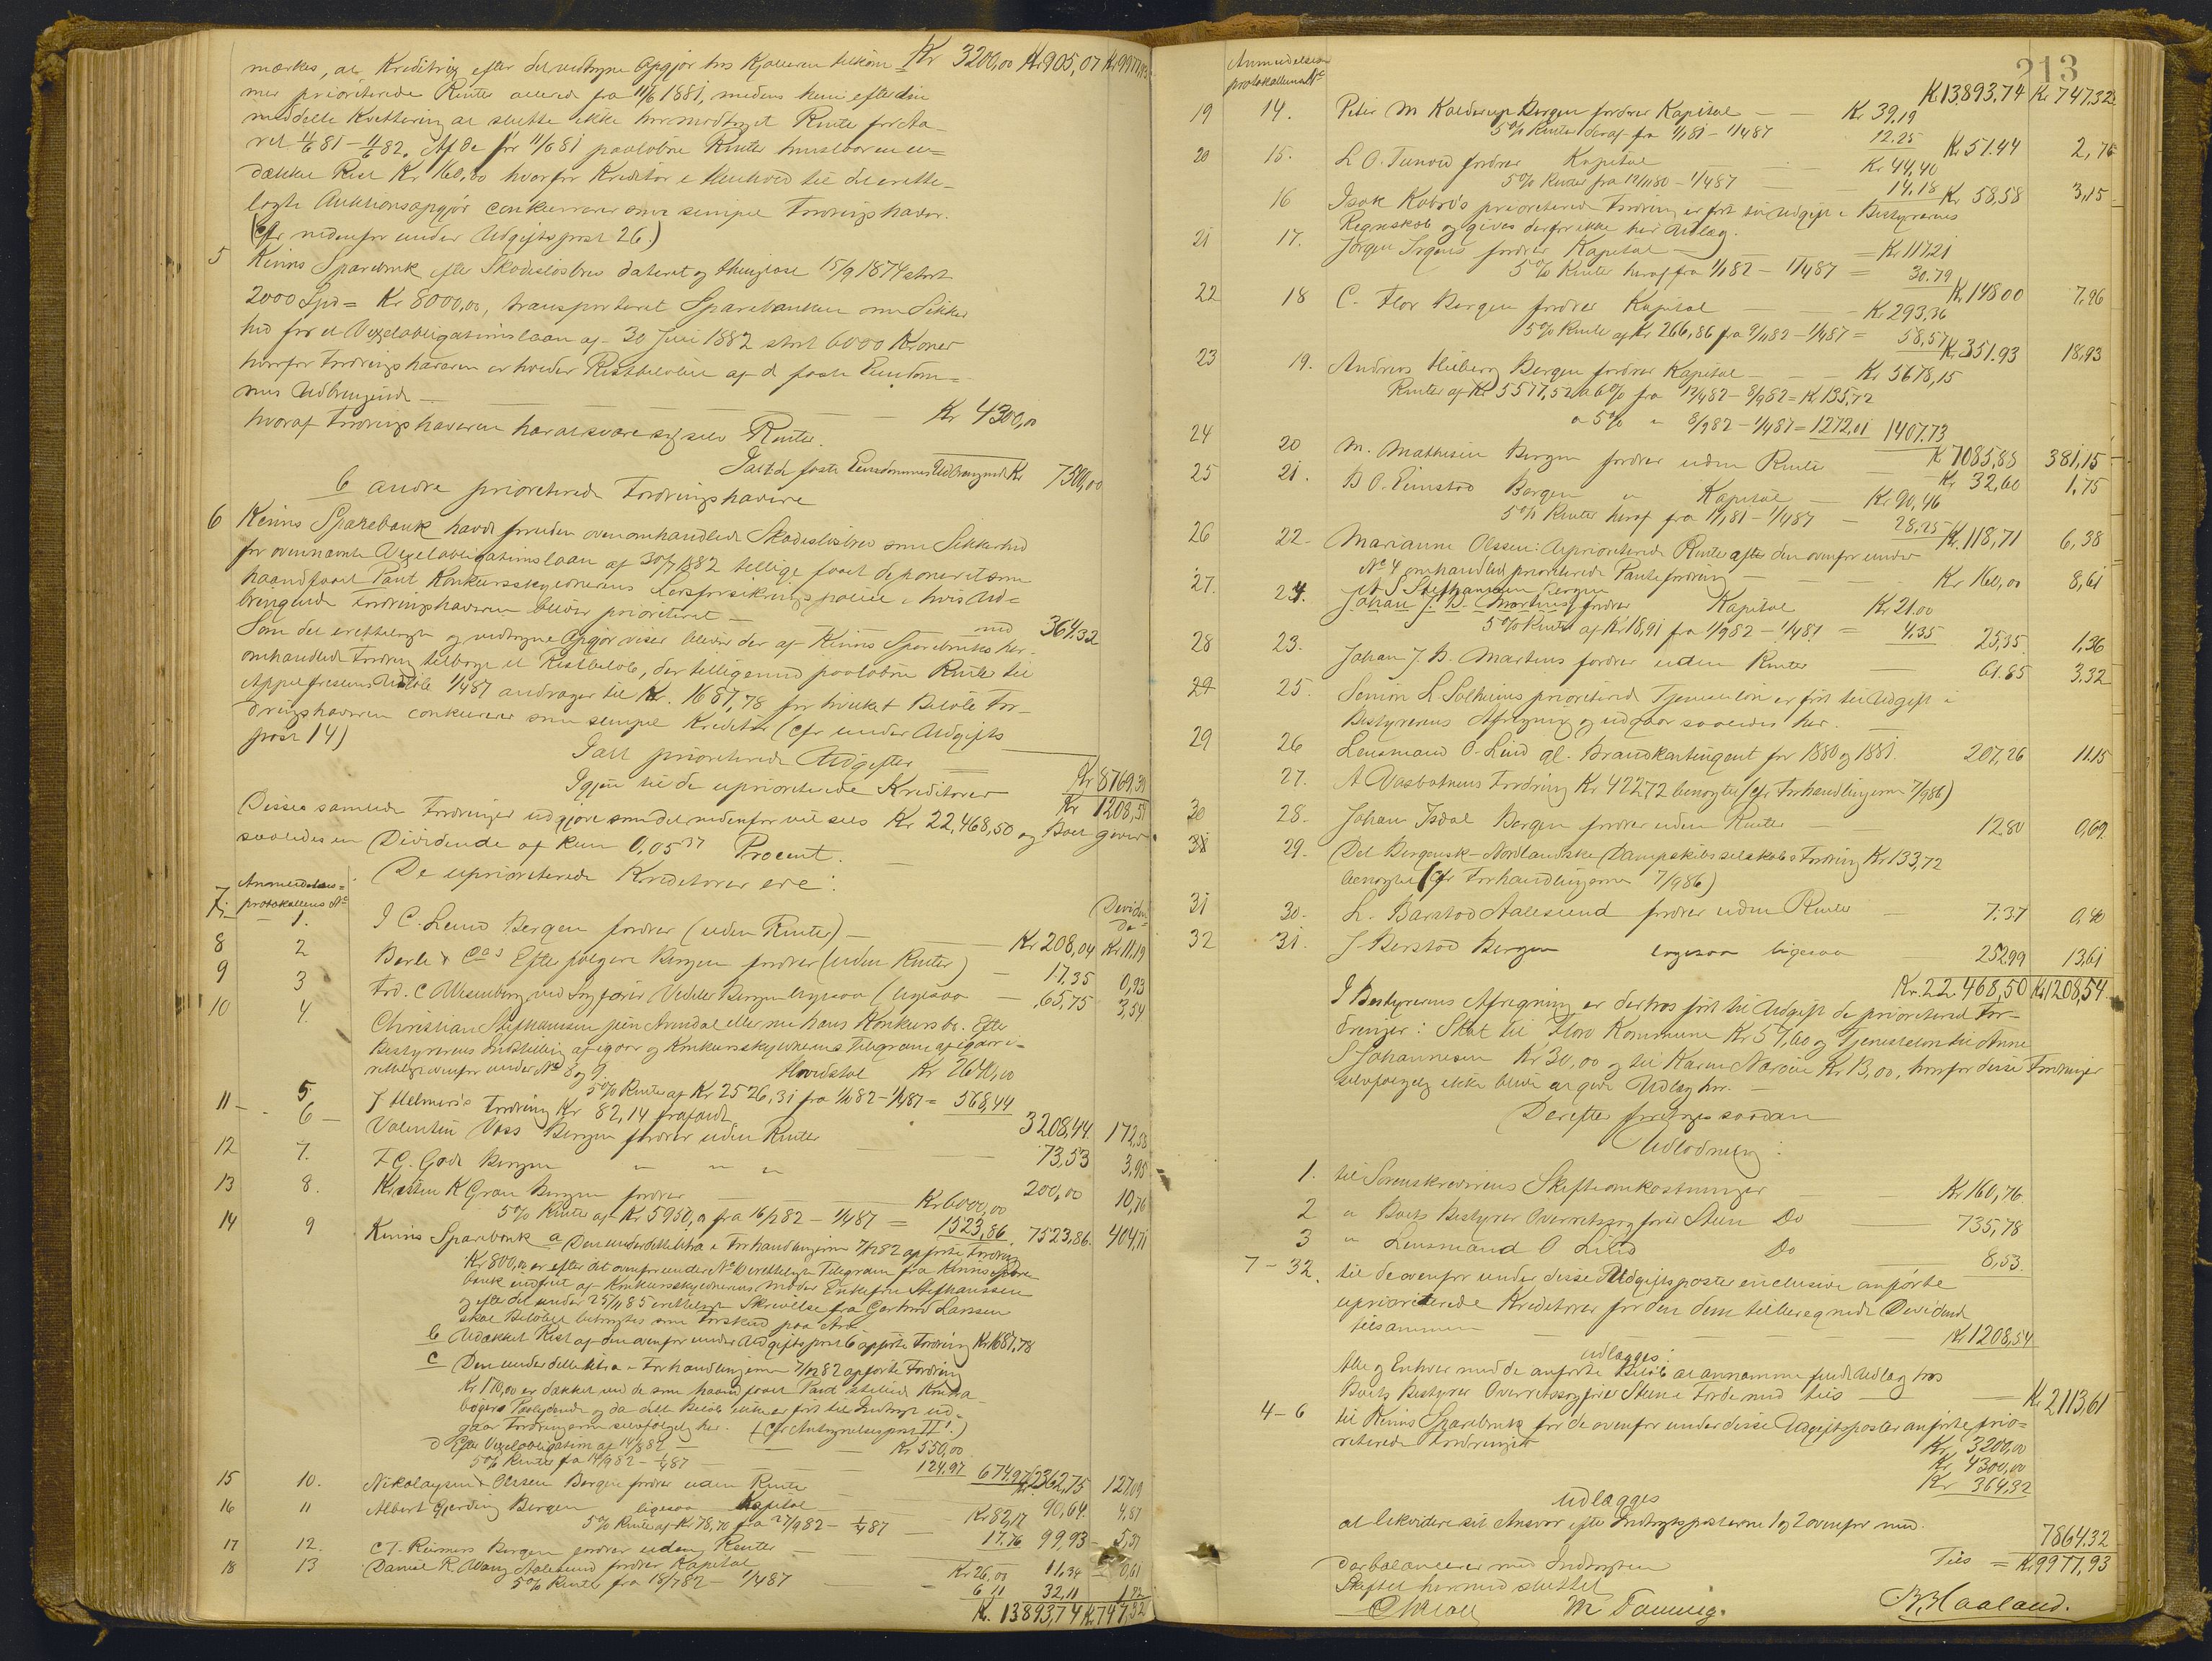 mærkes, at Kreditrix efter det vedtagne Opgjør hos Kjøberen tilkom Kr 3200,00 Kr 905,07 Kr 9977,93
mer prioriterede Renter allerede fra 11/6 1881, medens hun efter din
meddelte Kvittering at slutte ikke har modtaget Rente for Aa-
ret 11/6 81 - 11/6 82. Af de før 11/6 81 paaløbne Renter hvorfor en u=
dækket Rest Kr 160,00 hvorfor Kreditor i Henhold til det rette-
lagte Auktionsopgjør conkurrerer som simpel Fordringshaver.
(cfr nedenfor under Udgiftspost 26.)
5 Kinns Sparebank efter Skadesløsbrev dateret og thinglæst 15/9 1874 stort
2000 Spd = Kr 8000,00, transporteret Sparebanken som Sikker
hed for et Vexelobligationslaan af 30 Juni 1882 stort 6000 Kroner
hvorfor Fordringshaveren erholder Restbeløbet af d faste Eiendom=
mes Udbringende — Kr 4300,00
hvoraf Fordringshaveren har at svare sig selv Renter.
Ialt d faste Eiendommes Udbringende Kr 7500,00
b andre prioriterede Fordringshavere
6 Kinns Sparebank havde foruden ovenomhandlede Skadesløsbrev som Sikkerhed
for ovennævnte Vexelobligationslaan af 30/7 1882 tillige faaet deponeret som
haandfaaet Pant Konkursskyldnerens Livsforsikringspolice i hvis Ud=
bringende Fordringshaveren bliver prioriteret — med 364.32
Som det rettelagte og vedtagne Opgjør viser bliver der af Kinns Sparebanks her-
omhandlede Fordring tilbage et Restbeløb, der tilligemed paaløbne Renter til
Oppebørelsens Udløb 1/4 87 andrager til Kr. 1687,78 for hvilket Beløb For-
dringshaveren conkurrerer som simpel Kreditor (cfr under Udgifts
post 14)
Ialt prioriterede Udgifter — Kr 8769,39
Igjen til de uprioriterede Kreditorer Kr 1208,54
Disses samlede Fordringer udgjøre som det nedenfor vil sees Kr 22,468,50 og Boet giver
saaledes en Dividende af kun 0,0537 Procent.
De uprioriterede Kreditorer ere:
Anmeldelses=
protokollens No Dividen
de
7. 1. I C. Lund Bergen fordrer (uden Renter) — Kr 208,04 Kr 11,19
8 2 Berle & Cos Efterfølgere Bergen fordrer (uden Renter) — 17.35 0,93
9 3 Frd. C Wesenberg ved Sagfører Vedeler Bergen ligesaa (ligesaa — 65,75 3,54
10 4. Christian Stephansen jun Arendal eller nu hans Konkursbo. Efter
Bestyrerens Indstilling af igaar og Konkursskyldnerens Telegram af igaar i-
rettelagt ovenfor under No 8 og 9. Hovedstol Kr 2640,00
5% Rente af Kr 2526,31 fra 1/10 82 - 1/4 87 = 568,44 3208,44 172,58
5. J Helmers's Fordring Kr 82,14 frafaldt
11 6 Valentin Voss Bergen fordrer uden Renter 73,53 3,95
12 7. F G. Gade Bergen " " " 200,00 10,76
13 8. Kristen K Gran Bergen fordrer — Kr 6000,00
5% Rente af Kr 5950,00 fra 16/2 82 - 1/4 87 = 1523,86. 7523,86. 404,71
14 9 Kinns Sparebank a Den under dette Litra i Forhandlingerne 7/12 82 opførte Fordring
Kr 800,00 er efter det ovenfor under No 10 rettelagte Telegram fra Kinns Spare-
bank indfriet af Konkursskyldnerens Moder Enkefru Stephanssen
og efter det under 25/11 85 rettelagte Skrivelse fra Gerhard Larssen
skal Beløbet betragtes som Forskud paa Arv.
b Udækket Rest af den ovenfor under Udgiftspost 6 opførte Fordring Kr 1687,78
c Den under dette Litra i Forhandlingerne 7/12 82 opførte Fordring
Kr 170,00 er dækket ved de som haandfaaet Pant stillede
bogens Paalydende og da dette Beløb ikke er ført til Indtægt ud-
gaar Fordringerne selvfølgelig her. (cfr Antegnelsespost II!)
d Efter Vexelobligation af 14/3 82 — Kr 550,00
5% Renter fra 14/9 82 - 1/4 87 124,97 674,97 Kr 2362,75 127,09
15 10. Nikolaysen & Olssen Bergen fordrer uden Rente 90,64. 4,87
16 11 Albert Gjerding Bergen ligesaa Kapital — Kr 82,17
5% Rente af Kr 78,70 fra 27/9 82 - 1/4 87 17.76 99,93 5,37
17 12. C T. Reimers Bergen fordrer uden Renter — 11,34 0,61
18 13 Daniel R. Wang Aalesund fordrer Kapital Kr 26,00
5% Rente fra 18/7 82 - 1/4 87 6 11 32,11 1,72
Kr. 13893,74 Kr 747,32
213
Anmeldelses
protokollens No Kr 13,893,74 Kr 747,32
19 14. Peter M Kolderup Bergen fordrer Kapital — Kr 39,19
5% Rente deraf fra 1/1 81 - 1/4 87 12.25 Kr 51.44 2,76
20 15. L O. Tunold fordrer Kapital Kr 44,40
5% Renter fra 12/11 80 - 1/4 87 14,18 Kr 58,58 3,15
16 Isak Kobro's prioriterede Fordring er ført til Udgift i Bestyrerens
Regnskab og gives derfor ikke her Udlæg.
21 17. Jørgen Irgens fordrer Kapital — Kr 117,21
5% Renter heraf fra 1/1 82 - 1/4 87 = 30.79 Kr 148 00 7,96
22 18 C. Flor Bergen fordrer Kapital — Kr 293,36
5% Rente af Kr 266,86 fra 9/11 82 - 1/4 87 = 58,57 Kr 351.93 18,93
23 19. Andreas Hieberg Bergen fordrer Kapital — Kr 5678,15
Renter af Kr 5577,52 a 6% fra 12/4 82 - 8/9 82 = Kr 135,72
a 5% " 8/9 82 - 1/4 87 = 1272,01 1407,73 Kr 7085,88 381,15
24 20 M. Mathisen Bergen fordrer uden Rente — Kr 32,60 1,75
25 21. B O. Eimstad Bergen " Kapital — Kr 90,46
5% Renter heraf fra 1/1 81 - 1/4 87 — 28,25 Kr. 118,71 6,38
26 22 - Marianne Olssen: Uprioriterede Renter efter den ovenfor under
No 4 omhandlede prioriterede Pantefordring — Kr 160,00 8,61
27. 24. S Stephansen Bergen
Johan J. B. Martens fordrer Kapital Kr 21.00
5% Rente af Kr 18,91 fra 1/9 82 - 1/4 87 = 4.35 25,35. 1,36
28 23. Johan J. B. Martens fordrer uden Renter — 61.85 3.32
29 25. Simon L. Solheims prioriterede Tjenesteløn er ført til Udgift i
Bestyrerens Afregning og udgaar saaledes her.
29 26 Lensmand O. Lind gl. Brandkontingent for 1880 og 1881. 207,26 11.15
27. A Vasbotnens Fordring Kr 422 72 benegtet (cfr Forhandlingerne 7/9 86)
30 28. Johan Isdal Bergen fordrer uden Renter — 12.80 0,69
31 29. Det Bergensk-Nordlandske Dampskibsselskabs Fordring Kr 133,72
benegtet (cfr Forhandlingerne 7/9 86)
31 30. L. Barstad Aalesund fordrer uden Renter — 7.37 0,40
32 31. J Berstad Bergen ligesaa ligesaa 252.99 13,61
Kr. 22.468,50 Kr 1208,54
I Bestyrerens Afregning er derhos ført til Udgift de prioriterede For-
dringer: Skat til Florø Kommune Kr 57,60 og Tjenesteløn til Anne
S Johannesen Kr 30,00 og til Karen Nærøe Kr 13,00, hvorfor disse Fordringer
selvfølgelig ikke bliver at give Udlæg her. —
Derefter foretages saadan
Udlodning:
1. til Sorenskriverens Skifteomkostninger — Kr 160,76.
2 " Boets Bestyrer Overretssagfører Steen Do 735,78
3 " Lensmand O Lind Do 8,53.
7 - 32. til de ovenfor under disse Udgiftsposter inclusive anførte
uprioriterede Kreditorer for den dem tilberegnede Dividende
tilsammen — Kr 1208,54
udlægges:
Alle og Enhver med de anførte Beløb at annamme fuldt Udlæg hos
Boets Bestyrer Overretssagfører Steen i Førde med tils — Kr 2113,61
4 - 6 til Kinns Sparebank for de ovenfor under disse Udgiftsposter anførte prio-
riterede Fordringer Kr. 3200,00
Kr. 4300,00
Kr 364,32
udlægges
at likvidere sit Ansvar efter Indtægtsposterne 1 og 2 ovenfor med. 7864.32
Tils = Kr 9977,93
der balancerer med Indtægten
Skiftet hermed sluttet
M Tonning. Haaland.